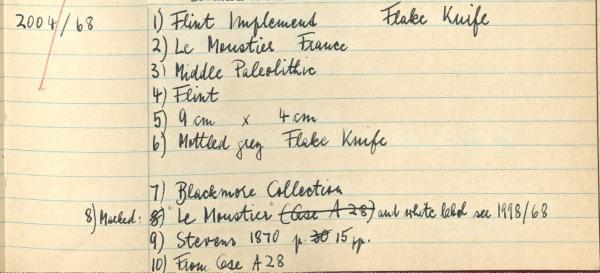 2004/68 1) Flint Implement Flake Knife
2) Le Moustier France
3) Middle Paleolithic
4) Flint
5) 9 cm x 4 cm
6) Mottled grey Flake Knife
7) Blackmore Collection
8) Marked: 8) Le Moustier (Case A 28) and white label see 1998/68
9) Stevens 1870 p. 30 15 pp.
10) From Case A 28